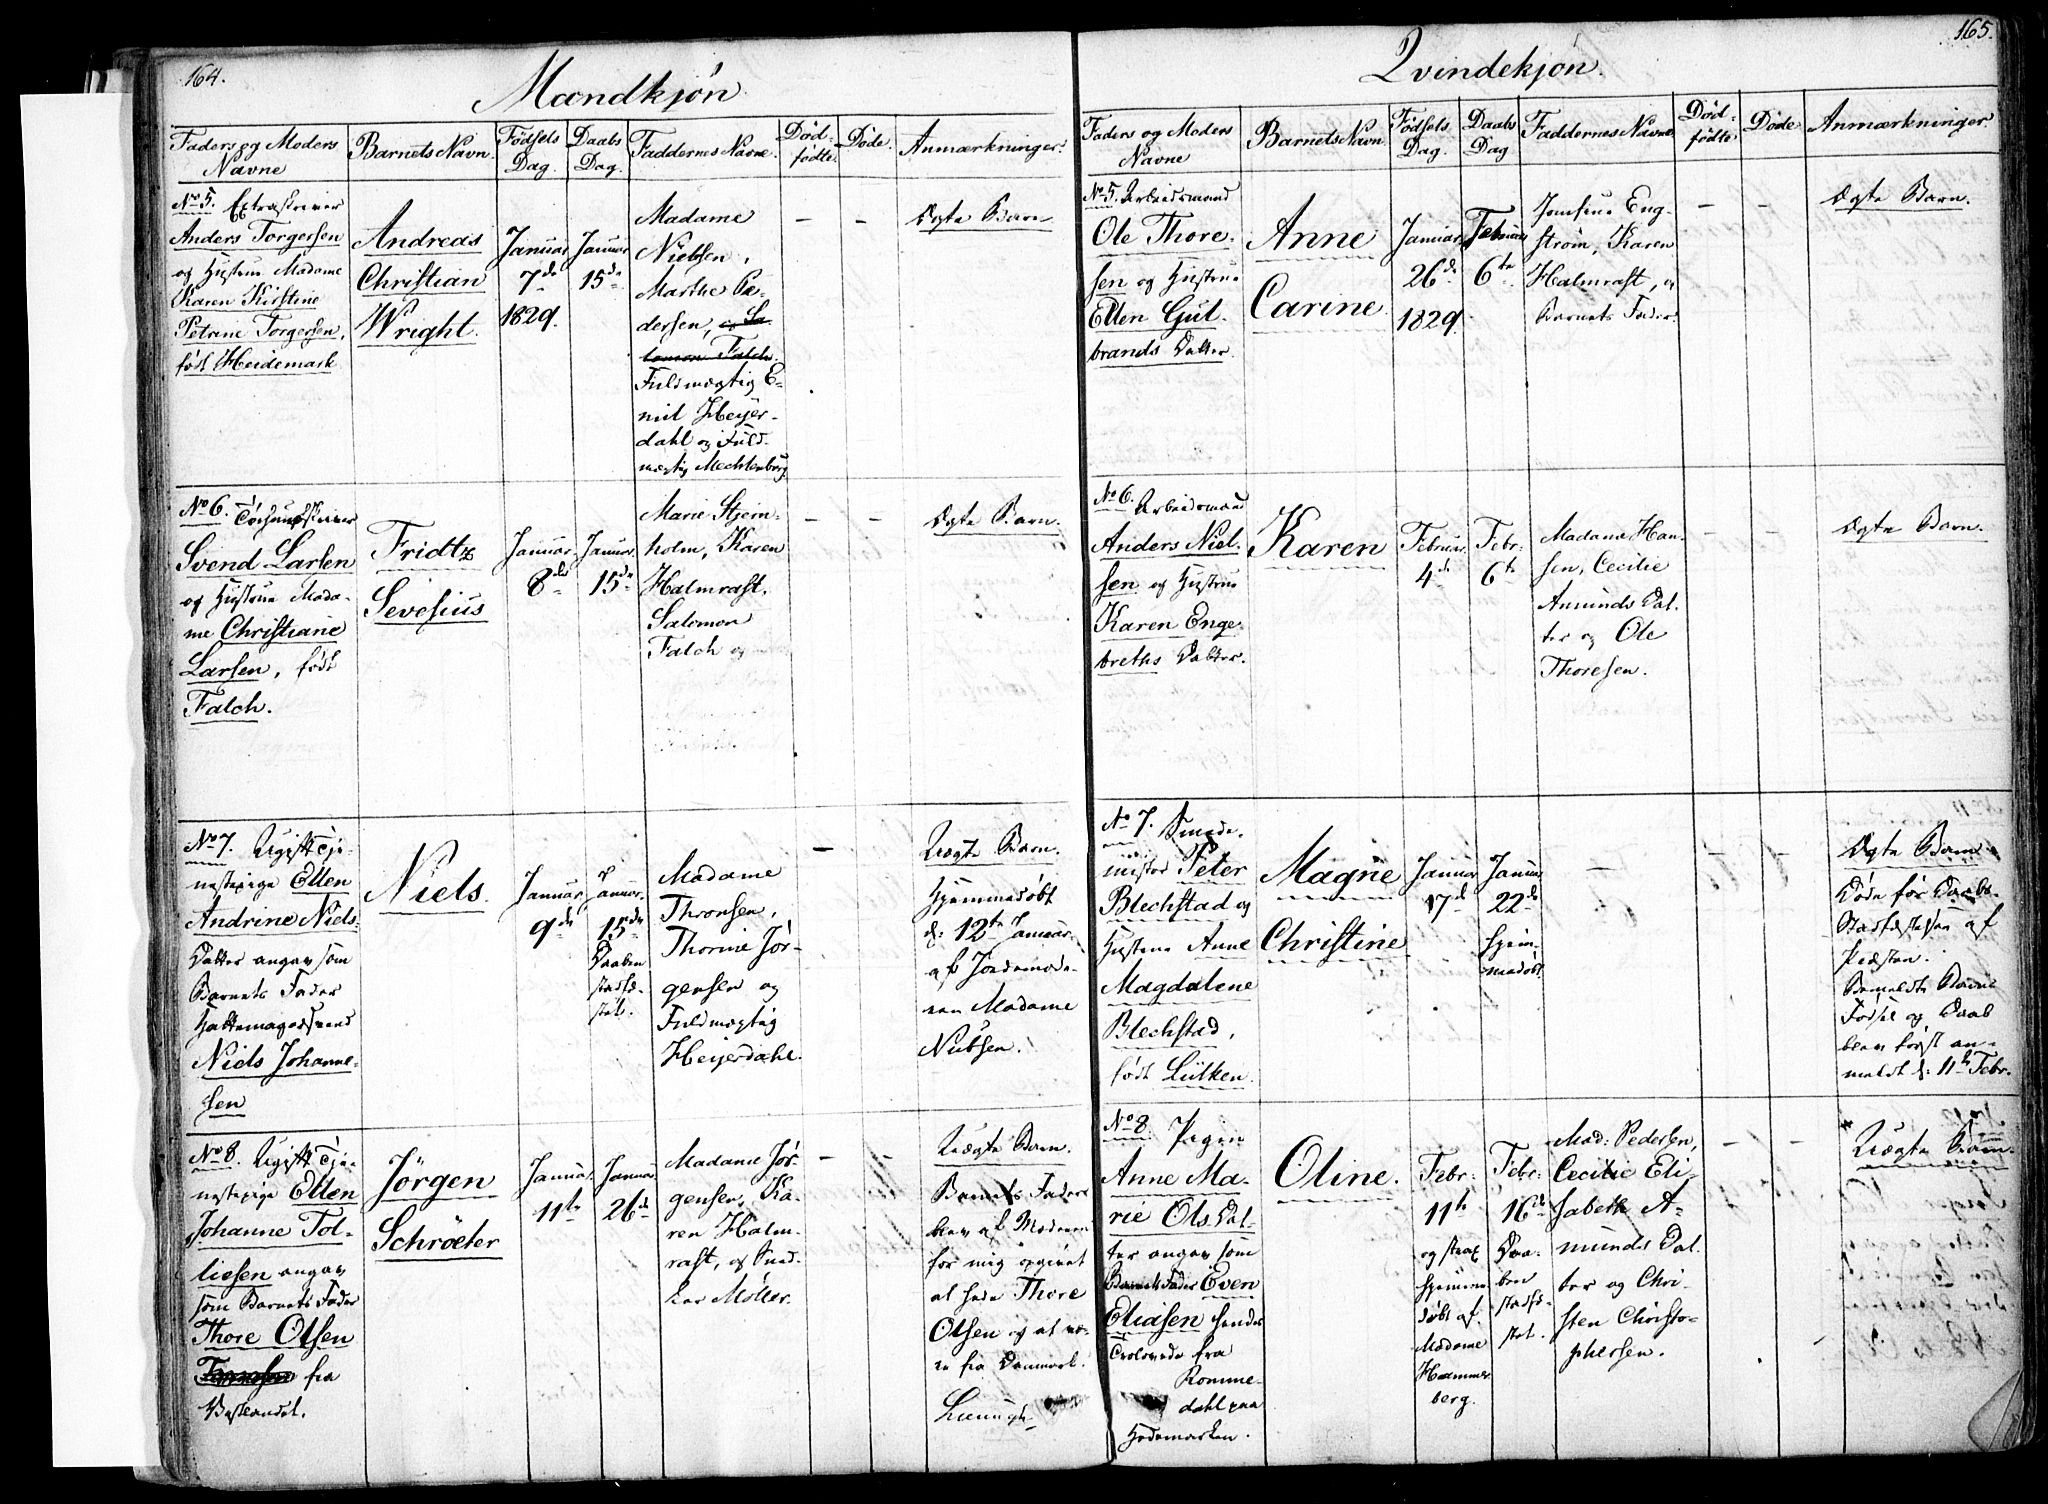 164.
Mandkjön.
Faders og Moders
Navne
Barnets Navn.
Födsels
Dag.
Daabs
Dag.
Faddernes Navne.
Död-
födte.
Döde.
Anmærkninger.
No 5. Extraskriver
Anders Torgersen
og Hustrue Madame
Karen Kirstine
Petane Torgersen,
født Heidemark
Andreas
Christian
Wright.
Januar
7de
1829.
Januar
15de
Madame
Nielsen,
Marthe Pe-
dersen, og Sa-
lomon Falch.
Fuldmægtig E-
mil Heyer-
dahl og Fuld-
mægtig Mechlenburg
–
–
Ægte Barn.
No 6.
Svend Larsen
og Hustrue Mada-
me Christiane
Larsen, født
Falch.
Fridtz
Sevesius
Januar
8de
Januar
15de
Marie Stjern-
holm, Karen
Halmrast.
Salomon
Falch og
–
–
Ægte Barn.
No 7. Ugift Tje-
nestepige Ellen
Andrine Niels-
Datter angav som
Barnets Fader
Hattemagersvend
Niels Johanne-
sen
Niels.
Januar
9de
Januar.
15de
Daaben
stadfæ-
stet.
Madame
Thronsen,
Thorine Jör-
gensen og
Fuldmægtig
Heijerdahl.
–
Uægte Barn.
Hjemmedöbt
d: 12te Januar
af Jordemode-
ren Madame
Nielsen.
No 8. Ugift Tje-
nestepige Ellen
Johanne Tol-
liesen angav
som Barnets Fader
Thore Olsen
fra
Vestlandet.
Jörgen
Schröeter
Januar
11te
Januar
26de
Madame Jör-
gensen, Ka-
ren Halm-
rast, og Sned-
ker Möller.
–
–
Uægte Barn.
Barnets Fader
blev af Moderen
for mig opgivet
at hede Thore
Olsen og at væ-
re fra Danmark.
165.
Qvindekjön.
Faders og Moders
Navne
Barnets Navn.
Födsels
Dag.
Daabs
Dag
Faddernes Navne
Död-
födte.
Döde
Anmærkninger.
No 5. Arbeidsmand
Ole Thore-
sen og Hustrue
Ellen Gul-
brands Datter.
Anne
Carine.
Januar
26de
1829.
Februar
6te
Jomfrue Eng-
ström, Karen
Halmrast, og
Barnets Fader.
–
–
Ægte Barn.
No 6. Arbeidsmand
Anders Niel-
sen og Hustrue
Karen Enge-
breths Datter.
Karen
Februar
4de
Febr:
6te
Madame Han-
sen, Cecilie
Amunds Dat-
ter og Ole
Thoresen.
–
–
Ægte Barn.
No 7. Smede-
mester Peter
Blechstad og
Hustrue Anne
Magdalene
Blechstad,
født Lütken.
Magne
Christine
Januar
17de
Januar
22de
Hjem-
medöbt.
–
–
Ægte Barn
Döde för Daabs-
Stadfæstelsen af
Præsten.
Bemeldte Barns
Födsel og Daab
blev först an-
meldt d: 11te Febr.
No 8. Pigen
Anne Ma-
rie Ols Dat-
ter angav som
Barnets Fader Even
Eliasen
fra
Romme-
dahl paa
Hedemarken.
Oline.
Febr:
11te
og strax
hjemme-
döbt af
Madame
Hammer-
berg.
Febr:
16de
Daa-
ben
stadfæ-
stet.
Mad: Pedersen,
Cecilie Eli-
sabeth A-
munds Dat-
ter og Chri-
sten Christo-
phersen.
–
–
Uægte Barn.